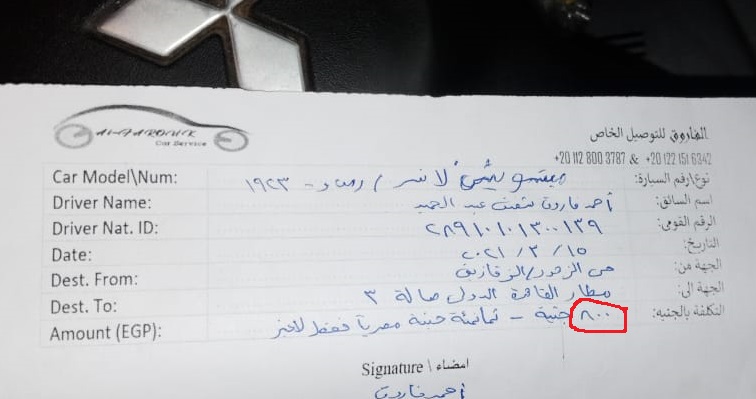 AL-FAROUK
Car Service
الفاروق للتوصيل الخاص
+20 112 800 3787 & +20 122 151 6342
Car Model\Num: ميتسوبيشى لانسر / ر ص د - ١٩٢٣ نوع/رقم السيارة:
Driver Name: أحمد فاروق عبد الحميد اسم السائق:
Driver Nat. ID: ٢٨٩١٠١٠١٣٠٠١٣٩ الرقم القومى:
Date: ١٥ / ٣ / ٢٠٢١ التاريخ:
Dest. From: حى الزهور/الزقازيق الجهة من:
Dest. To: مطار القاهرة الدولى صالة ٣ الجهة الى:
Amount (EGP): ٨٠٠ جنية - ثمانمئة جنية مصرياً فقط لاغير التكلفة بالجنيه:
Signature \ امضاء
أحمد فاروق